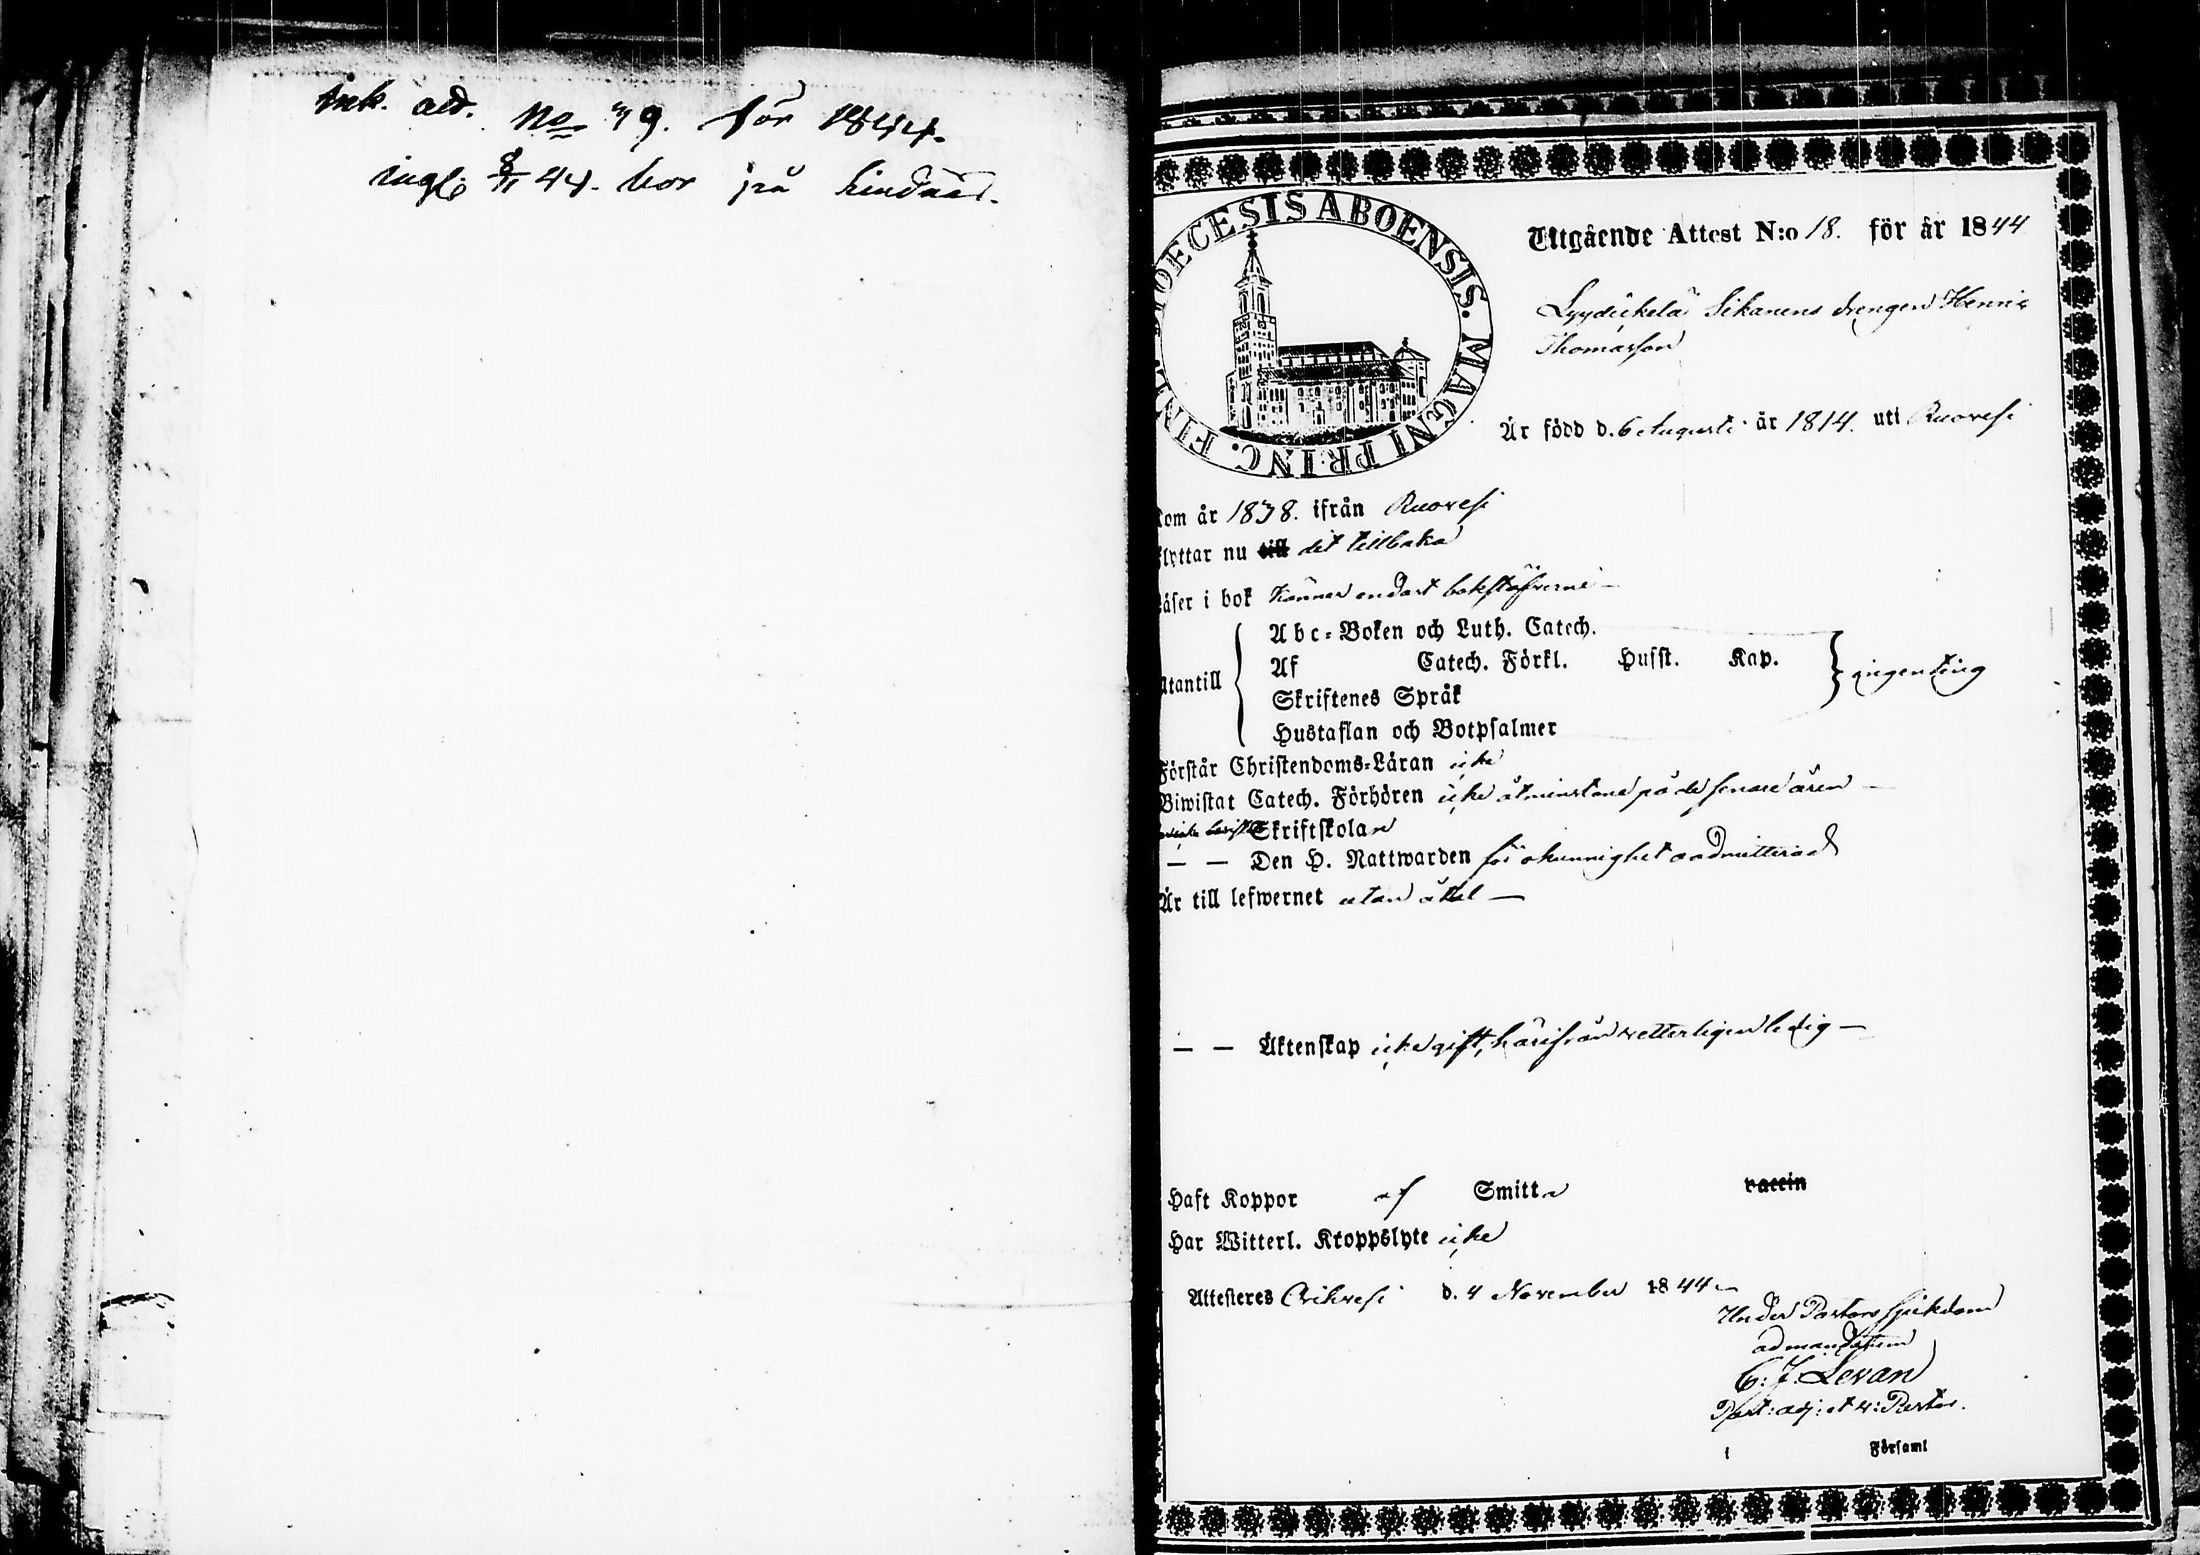 Ink. att. No 79. för 1844.
ingl. 8/11 44. bor på Lindnäs.
DIOECESIS ABOENSIS. MAGNI PRINC. FINL.
Utgående Attest N:o 18. för år 1844
Lyydikelä Sikanens drengen Henric
Thomasson
Är född d. 6 Augusti år 1814. uti Ruovesi
Kom år 1838. ifrån Ruovesi
flyttar nu till dit tillbaka
Läser i bok känner endast bokstäfverne —
Utantill
Abc-Boken och Luth. Catech.
Af Catech. Förkl. Husst. Kap.
ingenting
Skriftenes Språk
Hustaflan och Botpsalmer
Förstår Christendoms-Läran icke
Biwistat Catech. Förhören icke åtminstone på de senare åren —
Skriftskolan
— — Den H. Nattwarden för okunnighet oadmitterad
Är till lefwernet utan åtal —
— — Äktenskap icke gift, härifrån vetterligen ledig —
Haft Koppor af Smitta vaccin
Har Witterl. Kroppslyte icke
Attesteres Orihvesi d. 4 November 1844
Under Pastors sjukdom
ad mandatum
C. J. Levan
Past: adj: et v: Pastor.
i Församl